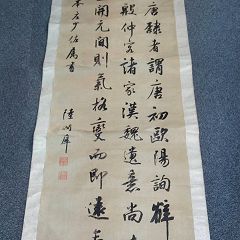 唐隸者謂唐初歐陽詢薛
殷仲容諸家漢魏遺意尚
開元間則氣格變而即遠
本石少伯屬書
陸潤庠